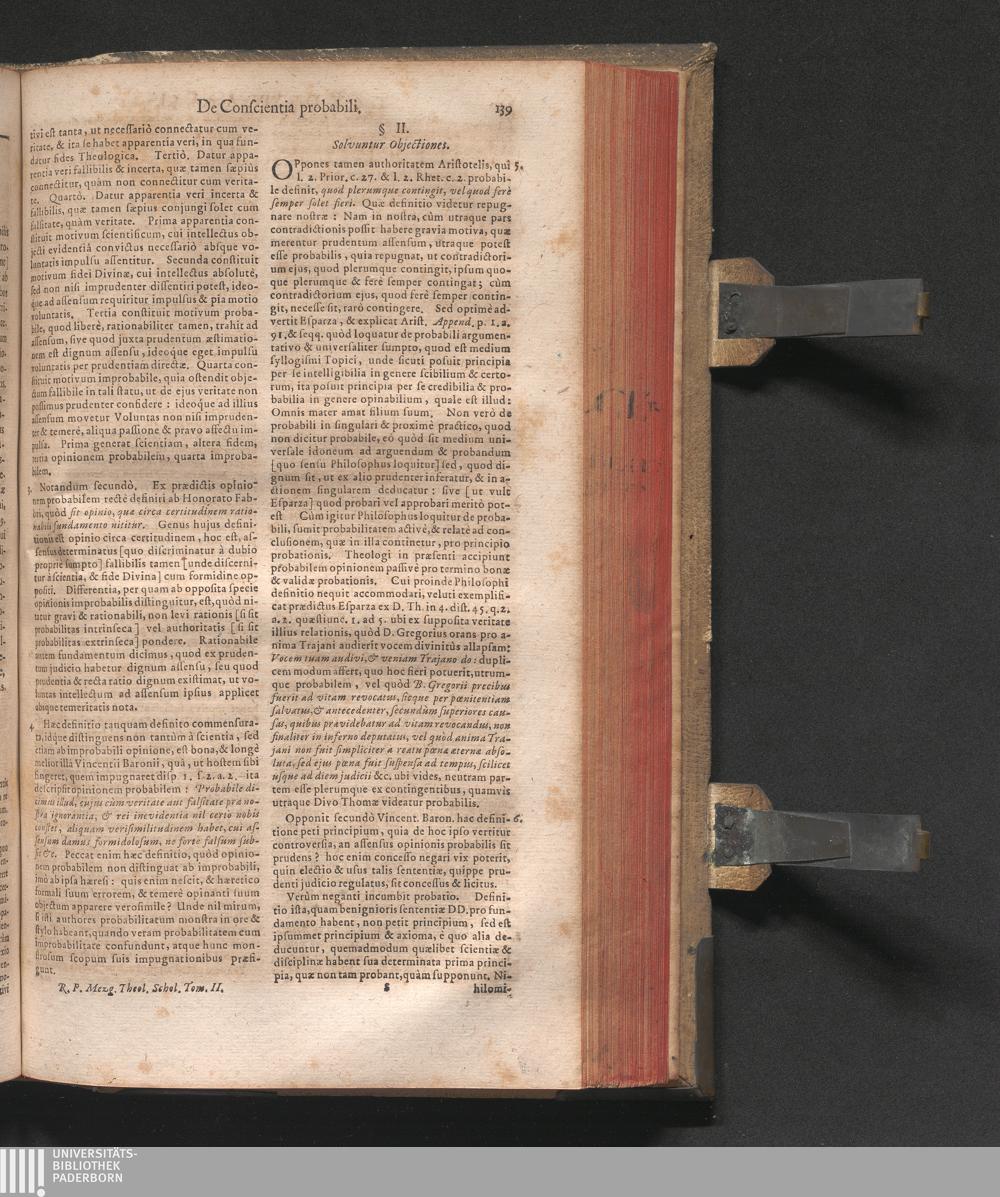 De Conſcientia probabili.
139
tivi eſt tanta, ut neceſſariò connectatur cum ve-
ritate, & ita ſe habet apparentia veri, in qua fun-
datur fides Theologica. Tertiò. Datur appa-
rentia veri fallibilis & incerta, quæ tamen ſæpiùs
connectitur, quàm non connectitur cum verita-
te. Quartò. Datur apparentia veri incerta &
fallibilis, quæ tamen ſæpius conjungi ſolet cum
falſitate, quàm veritate. Prima apparentia con-
ſtituit motivum ſcientificum, cui intellectus ob-
jecti evidentiâ convictus neceſſariò abſque vo-
luntatis impulſu aſſentitur. Secunda conſtituit
motivum fidei Divinæ, cui intellectus abſolutè,
ſed non niſi imprudenter diſſentiri poteſt, ideo-
que ad aſſenſum requiritur impulſus & pia motio
voluntatis. Tertia conſtituit motivum proba-
bile, quod liberè, rationabiliter tamen, trahit ad
aſſenſum, ſive quod juxta prudentum æſtimatio-
nem eſt dignum aſſenſu, ideoque eget impulſu
voluntatis per prudentiam directæ. Quarta con-
ſtituit motivum improbabile, quia oſtendit obje-
ctum fallibile in tali ſtatu, ut de ejus veritate non
poſſimus prudenter confidere: ideoque ad illius
aſſenſum movetur Voluntas non niſi impruden-
ter & temerè, aliqua paſſione & pravo affectu im-
pulſa. Prima generat ſcientiam, altera fidem,
tertia opinionem probabilem, quarta improba-
bilem.
3. Notandum ſecundò. Ex prædictis opinio-
nem probabilem rectè definiri ab Honorato Fab-
bri, quòd ſit opinio, quæ circa certitudinem ratio-
nabili fundamento nititur. Genus hujus defini-
tionis eſt opinio circa certitudinem, hoc eſt, aſ-
ſenſus determinatus [quo diſcriminatur à dubio
propriè ſumpto] fallibilis tamen [unde diſcerni-
tur à ſcientia, & fide Divina] cum formidine op-
poſiti. Differentia, per quam ab oppoſita ſpecie
opinionis improbabilis diſtinguitur, eſt, quòd ni-
tatur gravi & rationabili, non levi rationis [ſi ſit
probabilitas intrinſeca] vel authoritatis [ſi ſit
probabilitas extrinſeca] pondere. Rationabile
autem fundamentum dicimus, quod ex pruden-
tum judicio habetur dignum aſſenſu, ſeu quod
prudentia & recta ratio dignum exiſtimat, ut vo-
luntas intellectum ad aſſenſum ipſius applicet
abſque temeritatis nota.
4. Hæc definitio tanquam definito commenſura-
ta, idque diſtinguens non tantùm à ſcientia, ſed
etiam ab improbabili opinione, eſt bona, & longè
melior illâ Vincentii Baronii, quâ, ut hoſtem ſibi
fingeret, quem impugnaret diſp. 1. ſ. 2. a. 2. ita
deſcripſit opinionem probabilem: Probabile di-
cimus illud, cujus cùm veritate aut falſitate præ no-
ſtra ignorantia, & rei inevidentia nil certò nobis
conſtet, aliquam veriſimilitudinem habet, cui aſ-
ſenſum damus formidoloſum, ne forte falſum ſub-
ſit &c. Peccat enim hæc definitio, quòd opinio-
nem probabilem non diſtinguat ab improbabili,
imò ab ipſa hæreſi: quis enim neſcit, & hæretico
formali ſuum errorem, & temerè opinanti ſuum
objectum apparere veroſimile? Unde nil mirum,
ſi iſti authores probabilitatum monſtra in ore &
ſtylo habeant, quando veram probabilitatem cum
improbabilitate confundunt, atque hunc mon-
ſtroſum ſcopum ſuis impugnationibus præfi-
gunt.
R. P. Mezg. Theol. Schol. Tom. II.
§ II.
Solvuntur Objectiones.
OPpones tamen authoritatem Ariſtotelis, qui 5.
l. 2. Prior. c. 27. & l. 2. Rhet. c. 2. probabi-
le definit, quod plerumque contingit, vel quod ferè
ſemper ſolet fieri. Quæ definitio videtur repug-
nare noſtræ: Nam in noſtra, cùm utraque pars
contradictionis poſſit habere gravia motiva, quæ
merentur prudentum aſſenſum, utraque poteſt
eſſe probabilis, quia repugnat, ut contradictori-
um ejus, quod plerumque contingit, ipſum quo-
que plerumque & ferè ſemper contingat; cùm
contradictorium ejus, quod ferè ſemper contin-
git, neceſſe ſit, rarò contingere. Sed optimè ad-
vertit Eſparza, & explicat Ariſt. Append. p. 1. a.
91. & ſeqq. quòd loquatur de probabili argumen-
tativo & univerſaliter ſumpto, quod eſt medium
ſyllogiſmi Topici, unde ſicuti poſuit principia
per ſe intelligibilia in genere ſcibilium & certo-
rum, ita poſuit principia per ſe credibilia & pro-
babilia in genere opinabilium, quale eſt illud:
Omnis mater amat filium ſuum. Non verò de
probabili in ſingulari & proximè practico, quod
non dicitur probabile, eò quòd ſit medium uni-
verſale idoneum ad arguendum & probandum
[quo ſenſu Philoſophus loquitur] ſed, quod di-
gnum ſit, ut ex alio prudenter inferatur, & in a-
ctionem ſingularem deducatur: ſive [ut vult
Eſparza] quod probari vel approbari meritò pot-
eſt Cùm igitur Philoſophus loquitur de proba-
bili, ſumit probabilitatem activè, & relatè ad con-
cluſionem, quæ in illa continetur, pro principio
probationis. Theologi in præſenti accipiunt
probabilem opinionem paſſivè pro termino bonæ
& validæ probationis. Cui proinde Philoſophi
definitio nequit accommodari, veluti exemplifi-
cat prædictus Eſparza ex D. Th. in 4. diſt. 45. q. 2.
a. 2. quæſtiunc. 1. ad 5. ubi ex ſuppoſita veritate
illius relationis, quòd D. Gregorius orans pro a-
nima Trajani audierit vocem divinitùs allapſam:
Vocem tuam audivi, & veniam Trajano do: dupli-
cem modum affert, quo hoc fieri potuerit, utrum-
que probabilem, vel quòd B. Gregorii precibus
fuerit ad vitam revocatus, ſicque per pœnitentiam
ſalvatus, & antecedenter, ſecundùm ſuperiores cau-
ſas, quibus prævidebatur ad vitam revocandus, non
finaliter in inferno deputatus, vel quòd anima Tra-
jani non fuit ſimpliciter a reatu pœnæ æternæ abſo-
luta, ſed ejus pœna fuit ſuſpenſa ad tempus, ſcilicet
uſque ad diem judicii &c. ubi vides, neutram par-
tem eſſe plerumque ex contingentibus, quamvis
utraque Divo Thomæ videatur probabilis.
Opponit ſecundò Vincent. Baron. hac defini- 6.
tione peti principium, quia de hoc ipſo vertitur
controverſia, an aſſenſus opinionis probabilis ſit
prudens? hoc enim conceſſo negari vix poterit,
quin electio & uſus talis ſententiæ, quippe pru-
denti judicio regulatus, ſit conceſſus & licitus.
Verùm neganti incumbit probatio. Defini-
tio iſta, quam benignioris ſententiæ DD. pro fun-
damento habent, non petit principium, ſed eſt
ipſummet principium & axioma, è quo alia de-
ducuntur, quemadmodum quælibet ſcientiæ &
diſciplinæ habent ſua determinata prima princi-
pia, quæ non tam probant, quàm ſupponunt. Ni-
S
hilomi-
UNIVERSITÄTS-
BIBLIOTHEK
PADERBORN